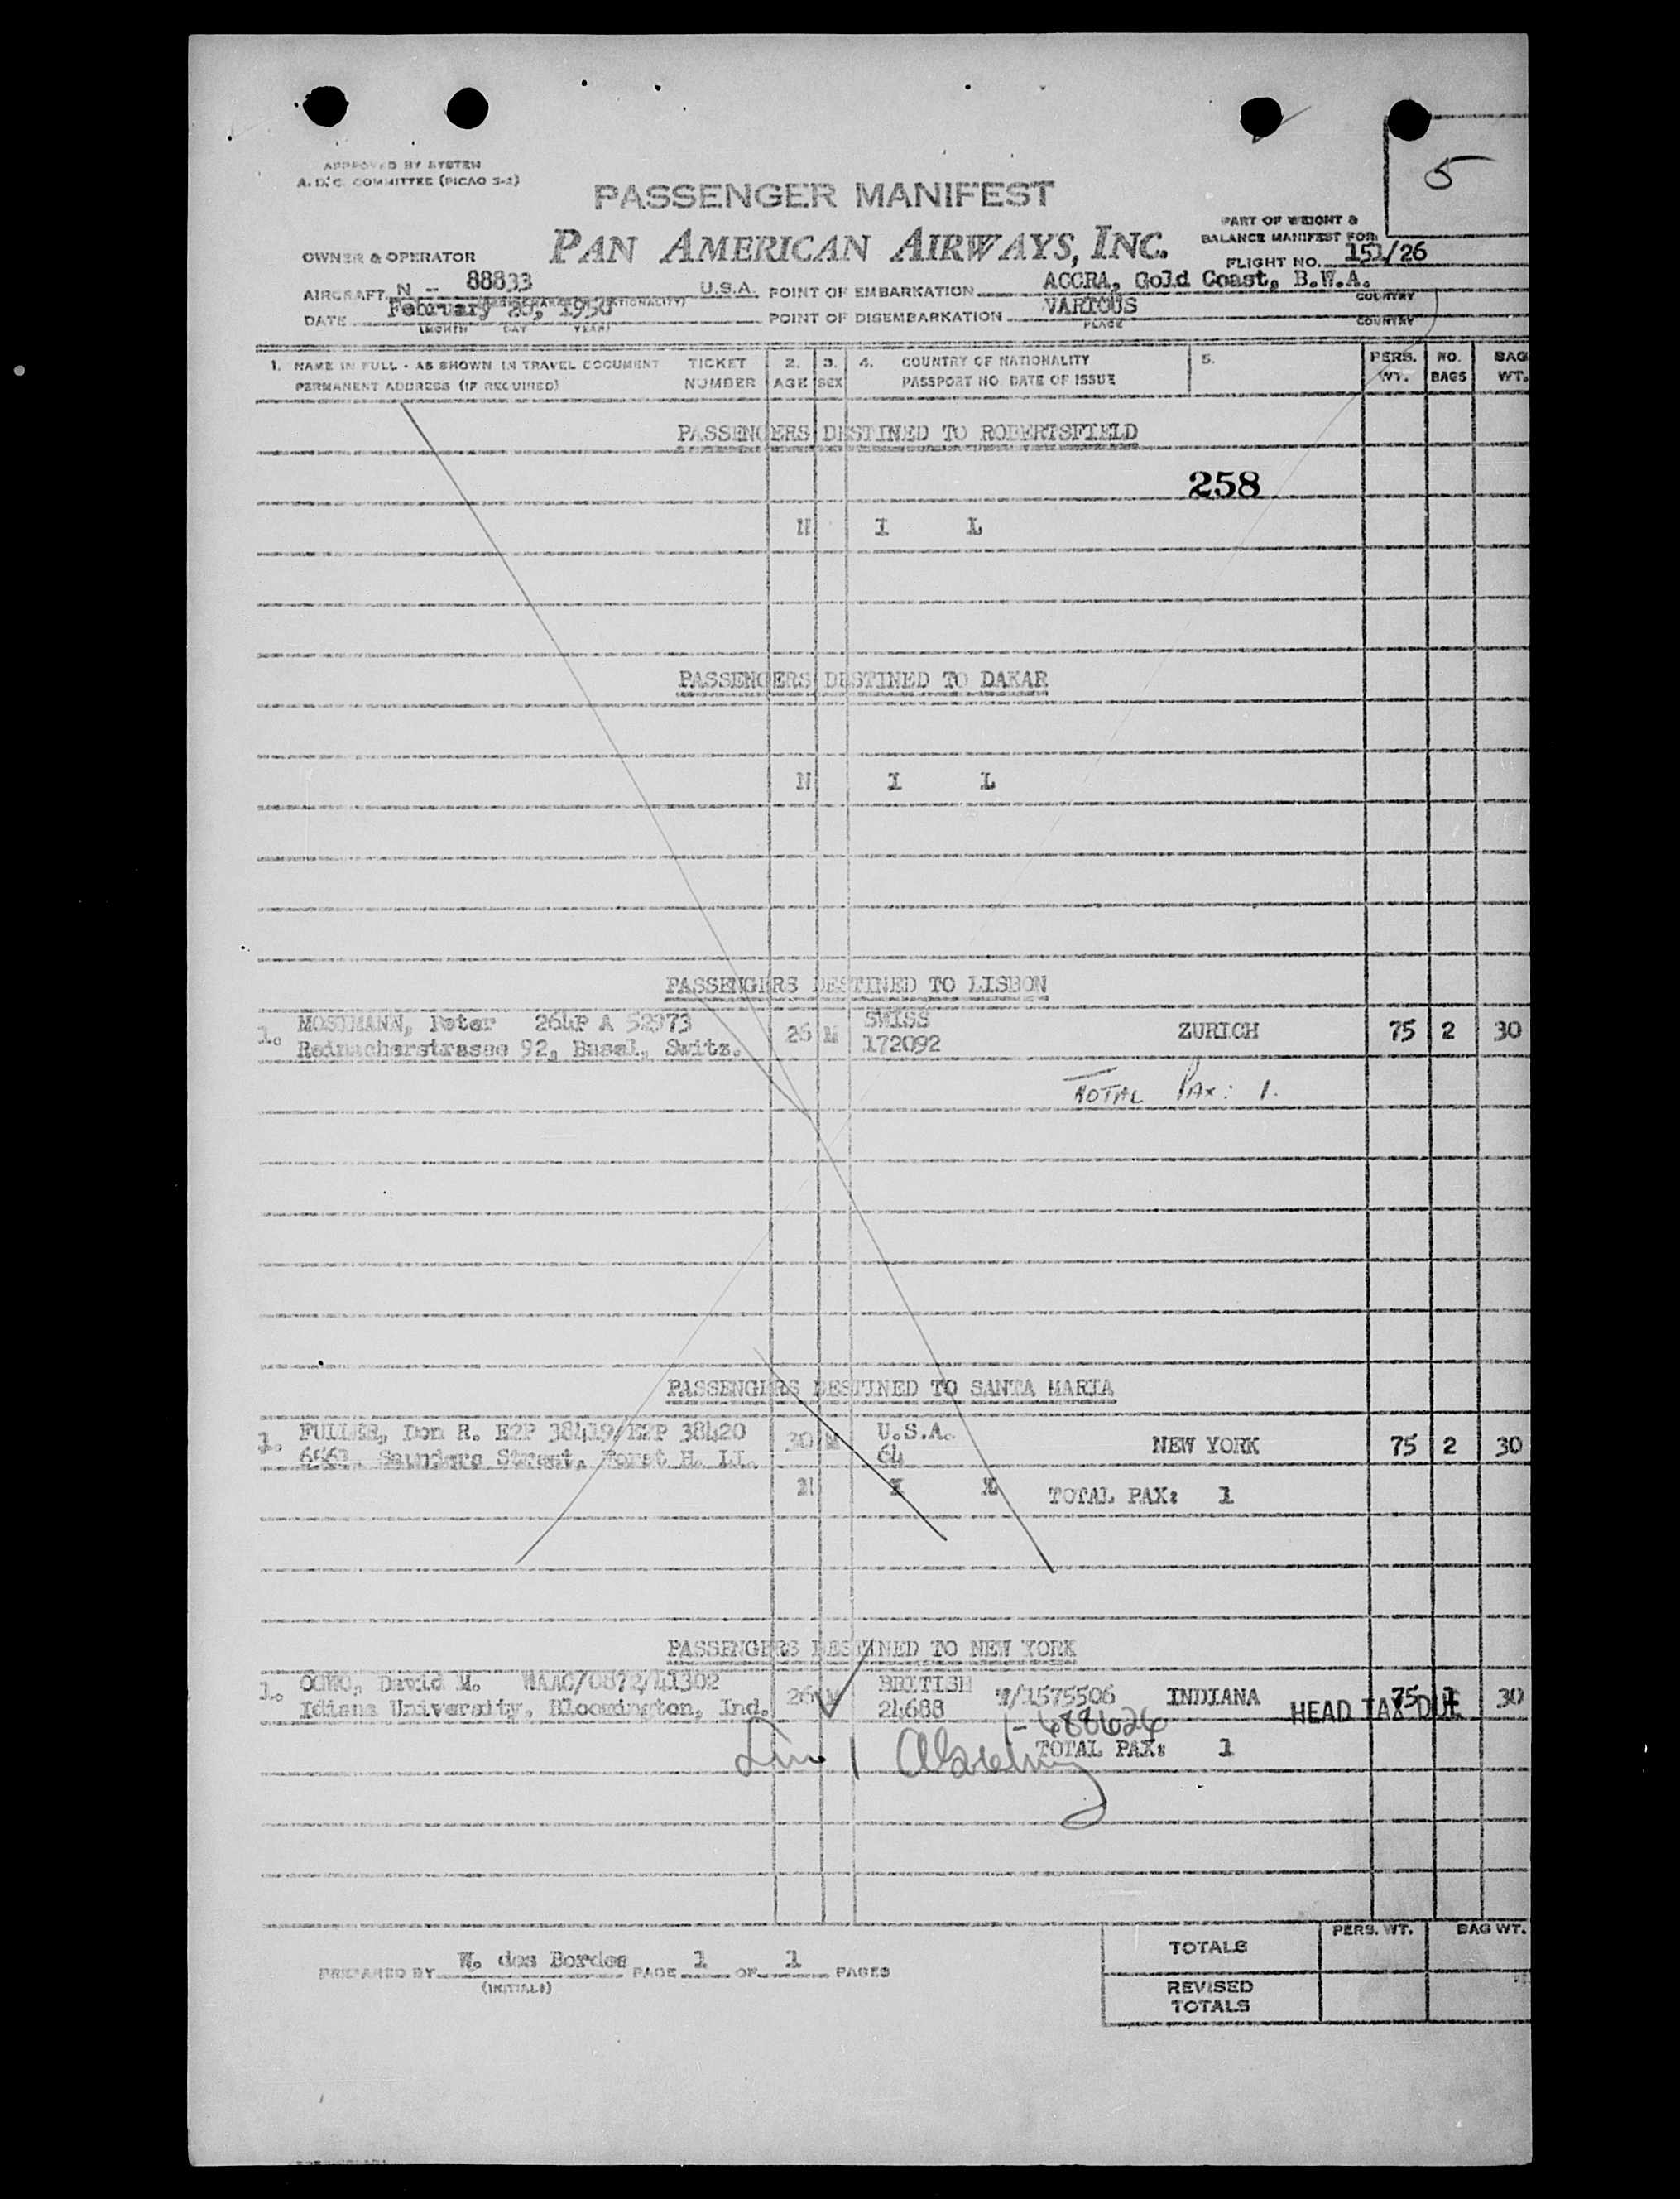 5
APPROVED BY SYSTEM
A. D. C. COMMITTEE (PICAO S-2)
PASSENGER MANIFEST
PART OF WEIGHT &
BALANCE MANIFEST FOR:
OWNER & OPERATOR PAN AMERICAN AIRWAYS, INC.
FLIGHT NO. 151/26
AIRCRAFT N - 88833 U.S.A. POINT OF EMBARKATION ACCRA, Gold Coast, B.W.A.
COUNTRY
DATE February 26, 1950 POINT OF DISEMBARKATION VARIOUS
(MONTH DAY YEAR) PLACE COUNTRY
1. NAME IN FULL - AS SHOWN IN TRAVEL DOCUMENT TICKET 2. 3. 4. COUNTRY OF NATIONALITY 5. PERS. NO. BAG
PERMANENT ADDRESS (IF REQUIRED) NUMBER AGE SEX PASSPORT NO. DATE OF ISSUE WT. BAGS WT.
PASSENGERS DESTINED TO ROBERTSFIELD
258
N I L
PASSENGERS DESTINED TO DAKAR
N I L
PASSENGERS DESTINED TO LISBON
1. Peter 264P A 26 M SWISS ZURICH 75 2 30
92, Basel, Switz. 172092
TOTAL PAX: 1.
PASSENGERS DESTINED TO SANTA MARIA
1. FULLER, Don R. E2P 38419/E2P 38420 30 M U.S.A. NEW YORK 75 2 30
Saunders Street, Forst H. LI. 64
N I L TOTAL PAX: 1
PASSENGERS DESTINED TO NEW YORK
1. David M. WAAC/0872/41302 26 M BRITISH 1575506 INDIANA 75 1 30
Idiana University, Bloomington, Ind. 24688 HEAD TAX DUE
TOTAL PAX: 1
TOTALS PERS. WT. BAG WT.
PREPARED BY W. des Bordes PAGE 1 OF 1 PAGES
(INITIALS)
REVISED
TOTALS